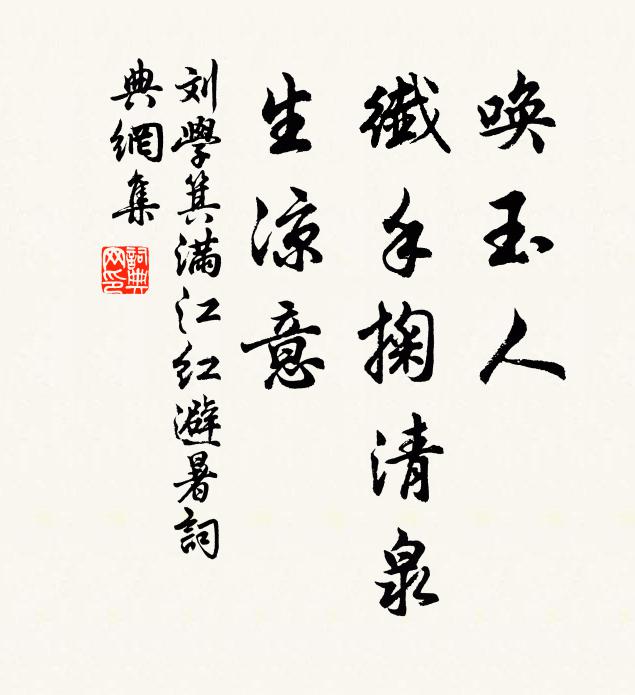 唤玉人
纖手掬清泉
生凉意
刘學箕满江红避暑詞
典網集
詞典网印